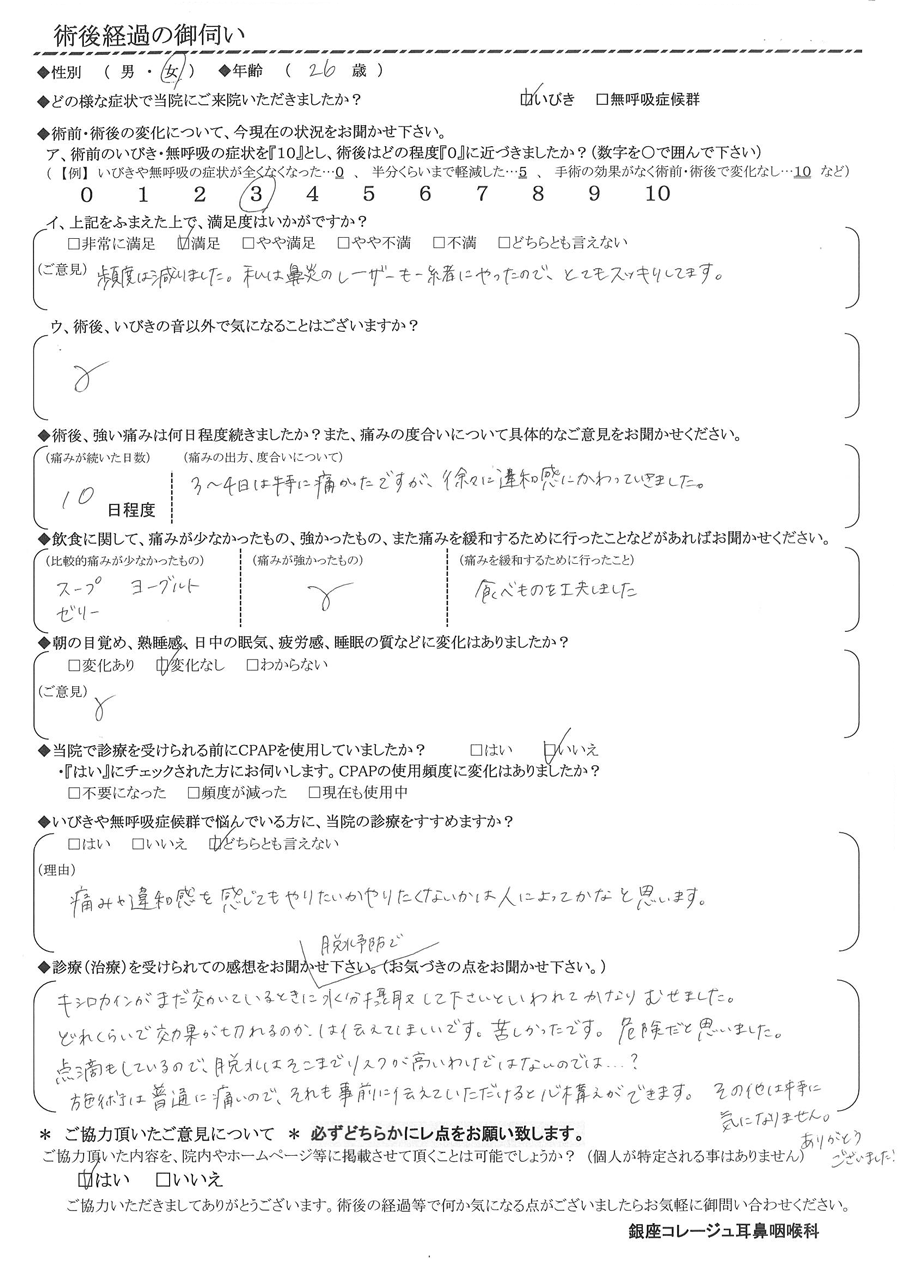 術後経過の御伺い
◆性別 ( 男 ・ 女 ) ◆年齢 ( 26 歳 )
◆どの様な症状で当院にご来院いただきましたか? ☑いびき □無呼吸症候群
◆術前・術後の変化について、今現在の状況をお聞かせ下さい。
ア、術前のいびき・無呼吸の症状を『10』とし、術後はどの程度『0』に近づきましたか?(数字を○で囲んで下さい)
(【例】いびきや無呼吸の症状が全くなくなった…0 、 半分くらいまで軽減した…5 、 手術の効果がなく術前・術後で変化なし…10 など)
0 1 2 3 4 5 6 7 8 9 10
イ、上記をふまえた上で、満足度はいかがですか?
□非常に満足 ☑満足 □やや満足 □やや不満 □不満 □どちらとも言えない
(ご意見) 頻度は減りました。私は鼻炎のレーザーも一緒にやったので、とてもスッキリしてます。
ウ、術後、いびきの音以外で気になることはございますか?
◆術後、強い痛みは何日程度続きましたか?また、痛みの度合いについて具体的なご意見をお聞かせください。
(痛みが続いた日数) (痛みの出方、度合いについて)
10 日程度 3〜4日は特に痛かったですが、徐々に違和感にかわっていきました。
◆飲食に関して、痛みが少なかったもの、強かったもの、また痛みを緩和するために行ったことなどがあればお聞かせください。
(比較的痛みが少なかったもの) (痛みが強かったもの) (痛みを緩和するために行ったこと)
スープ ヨーグルト 食べものを工夫しました
ゼリー
◆朝の目覚め、熟睡感、日中の眠気、疲労感、睡眠の質などに変化はありましたか?
□変化あり ☑変化なし □わからない
(ご意見)
◆当院で診療を受けられる前にCPAPを使用していましたか? □はい ☑いいえ
・『はい』にチェックされた方にお伺いします。CPAPの使用頻度に変化はありましたか?
□不要になった □頻度が減った □現在も使用中
◆いびきや無呼吸症候群で悩んでいる方に、当院の診療をすすめますか?
□はい □いいえ ☑どちらとも言えない
(理由)
痛みや違和感を感じてもやりたいかやりたくないかは人によってかなと思います。
脱水予防で
◆診療(治療)を受けられての感想をお聞かせ下さい。(お気づきの点をお聞かせ下さい。)
キシロカインがまだ効いているときに水分摂取して下さいといわれてかなりむせました。
どれくらいで効果が切れるのか、は伝えてほしいです。苦しかったです。危険だと思いました。
点滴もしているので、脱水はそこまでリスクが高いわけではないのでは…?
施術は普通に痛いので、それも事前に伝えていただけると心構えができます。 その他は特に
気になりません。
ありがとう
ございました!
＊ ご協力頂いたご意見について ＊ 必ずどちらかにレ点をお願い致します。
ご協力頂いた内容を、院内やホームページ等に掲載させて頂くことは可能でしょうか? (個人が特定される事はありません)
☑はい □いいえ
ご協力いただきましてありがとうございます。術後の経過等で何か気になる点がございましたらお気軽に御問い合わせください。
銀座コレージュ耳鼻咽喉科